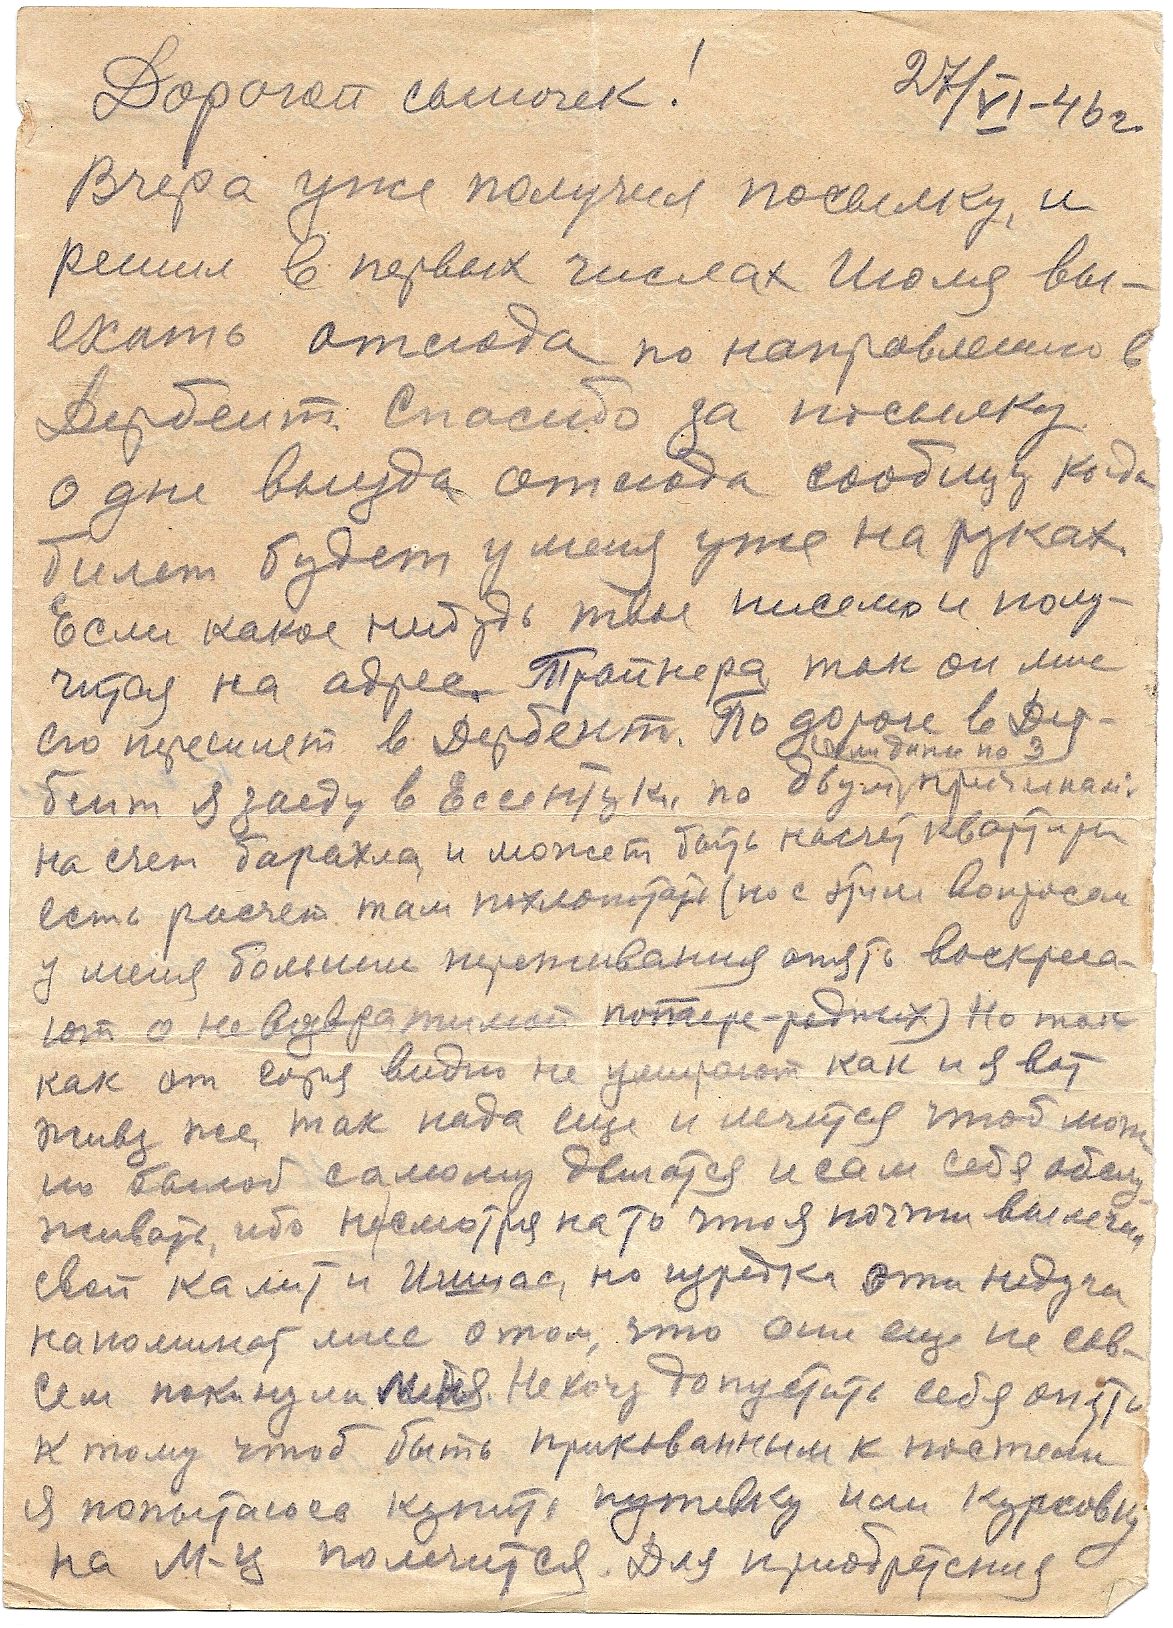 Дорогой сыночек! 27/VI-46 г.
Вчера уже получил посылку, и
решил в первых числах Июля вы-
ехать отсюда по направлению в
Дербент. Спасибо за посылку.
о дне выезда отсюда сообщу когда
билет будет у меня уже на руках.
Если какое нибудь твое письмо и полу-
чится на адрес Трайнера, так он мне
его перешлет в Дербент. По дороге в Дер-
или даже по 3
бент я заеду в Ессентуки, по двум причинам:
на счет барахла, и может быть насчет квартиры
есть расчет там похлопотать (но с этим вопросом
у меня большие переживания опять воскреса-
ют о невозвратимой потере-родных) Но так
как от горя видно не умирают как и я вот
живу же, так нада еще и лечится чтоб мож
но было самому двигатся и сам себя обслу-
живать, ибо несмотря на то что я почти вылечил
свой калит и Ишиас, но изредка эти недуги
напоминают мне о том, что они еще не сов-
сем покинули меня. Не хочу допустить себя опять
к тому чтоб быть прикованным к постели
я попытаюсь купить путевку или курсовку
на М-ц полечится. Для приобретения